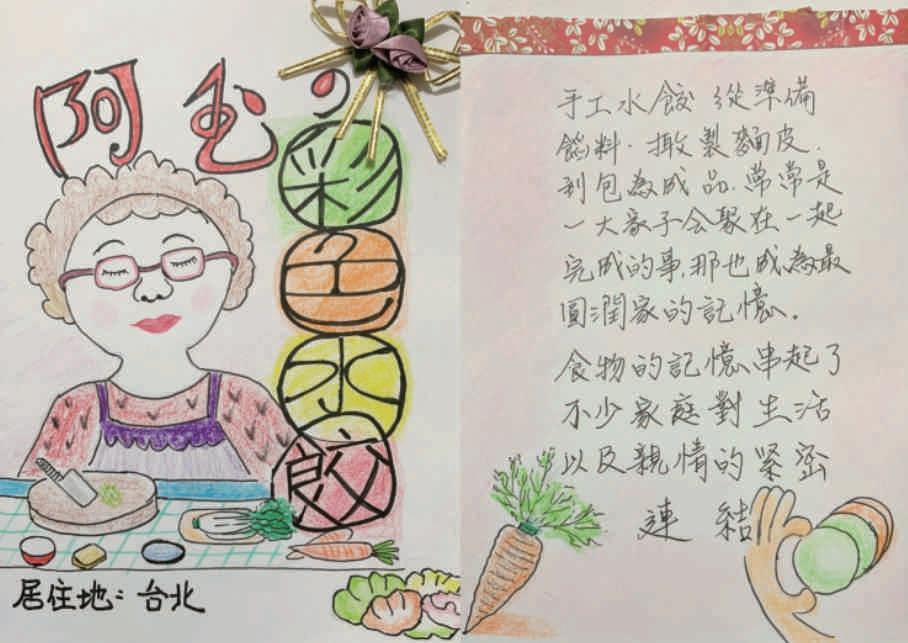 阿玉
彩色水餃
居住地：台北
手工水餃 從準備
餡料．撖製麵皮．
到包為成品．常常是
一大家子会聚在一起
完成的事，那也成為最
圓潤家的記憶．
食物的記憶串起了
不少家庭對生活
以及親情的緊密
連結